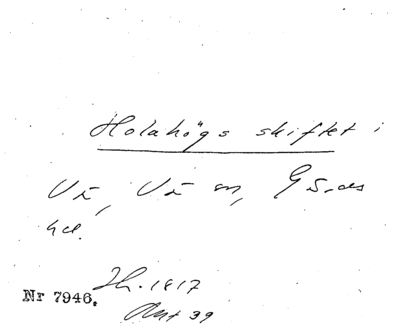 Holahögs skiftet i
Vä, Vä sn, Gärds
hd.
Sk. 1817
Nr 7946. Akt 39